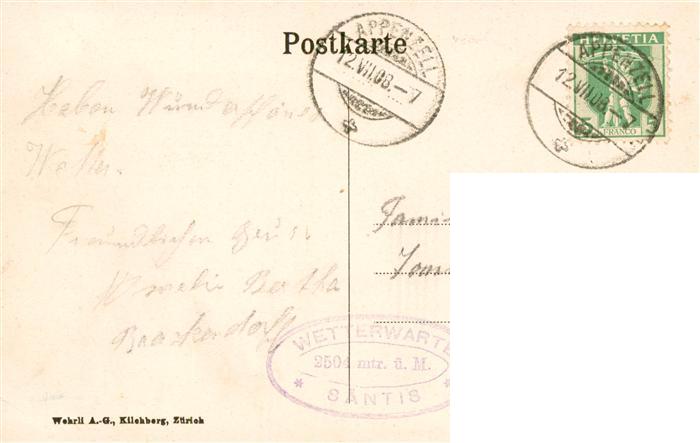 Postkarte
APPENZELL
12.VII.08.–7
HELVETIA
5 5
FRANCO
APPENZELL
12.VII.08.–7
Haben Wunderschönes
Wetter.
Freundlichen Gruss
Bertha
WETTERWARTE
2504 mtr. ü. M.
SÄNTIS
Wehrli A.-G., Kilchberg, Zürich